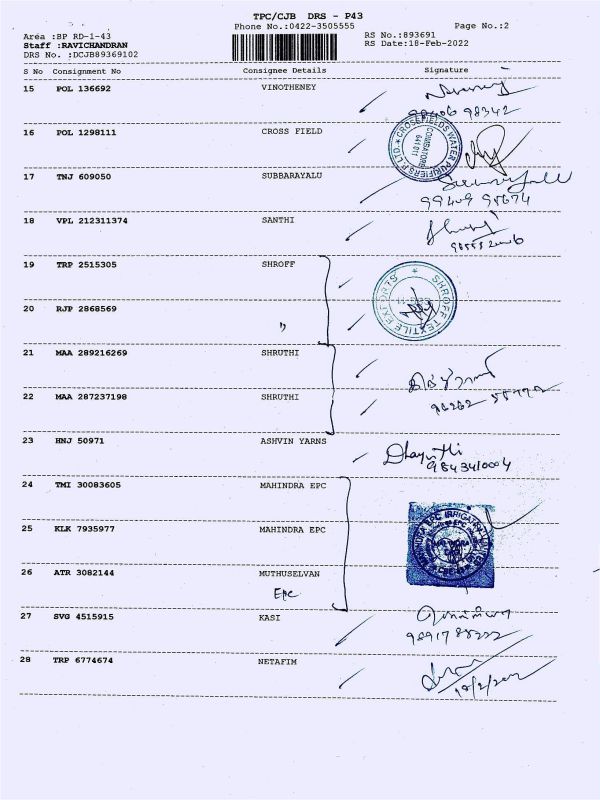 TPC/CJB DRS - P43
Phone No.:0422-3505555 Page No.:2
Area :BP RD-1-43 RS No.:893691
Staff :RAVICHANDRAN RS Date:18-Feb-2022
DRS No. :DCJB89369102
S No Consignment No Consignee Details Signature
15 POL 136692 VINOTHENEY
98406 98342
16 POL 1298111 CROSS FIELD
CROSSFIELDS WATER PURIFIERS P. LTD.
COIMBATORE
641 011
17 TNJ 609050 SUBBARAYALU
99409 95674
18 VPL 212311374 SANTHI
19 TRP 2515305 SHROFF
SHROFF TEXTILE EXPORTS
20 RJP 2868569 "
21 MAA 289216269 SHRUTHI
22 MAA 287237198 SHRUTHI
23 HNJ 50971 ASHVIN YARNS
9843410004
24 TMI 30083605 MAHINDRA EPC
25 KLK 7935977 MAHINDRA EPC
26 ATR 3082144 MUTHUSELVAN
Epc
27 SVG 4515915 KASI
28 TRP 6774674 NETAFIM